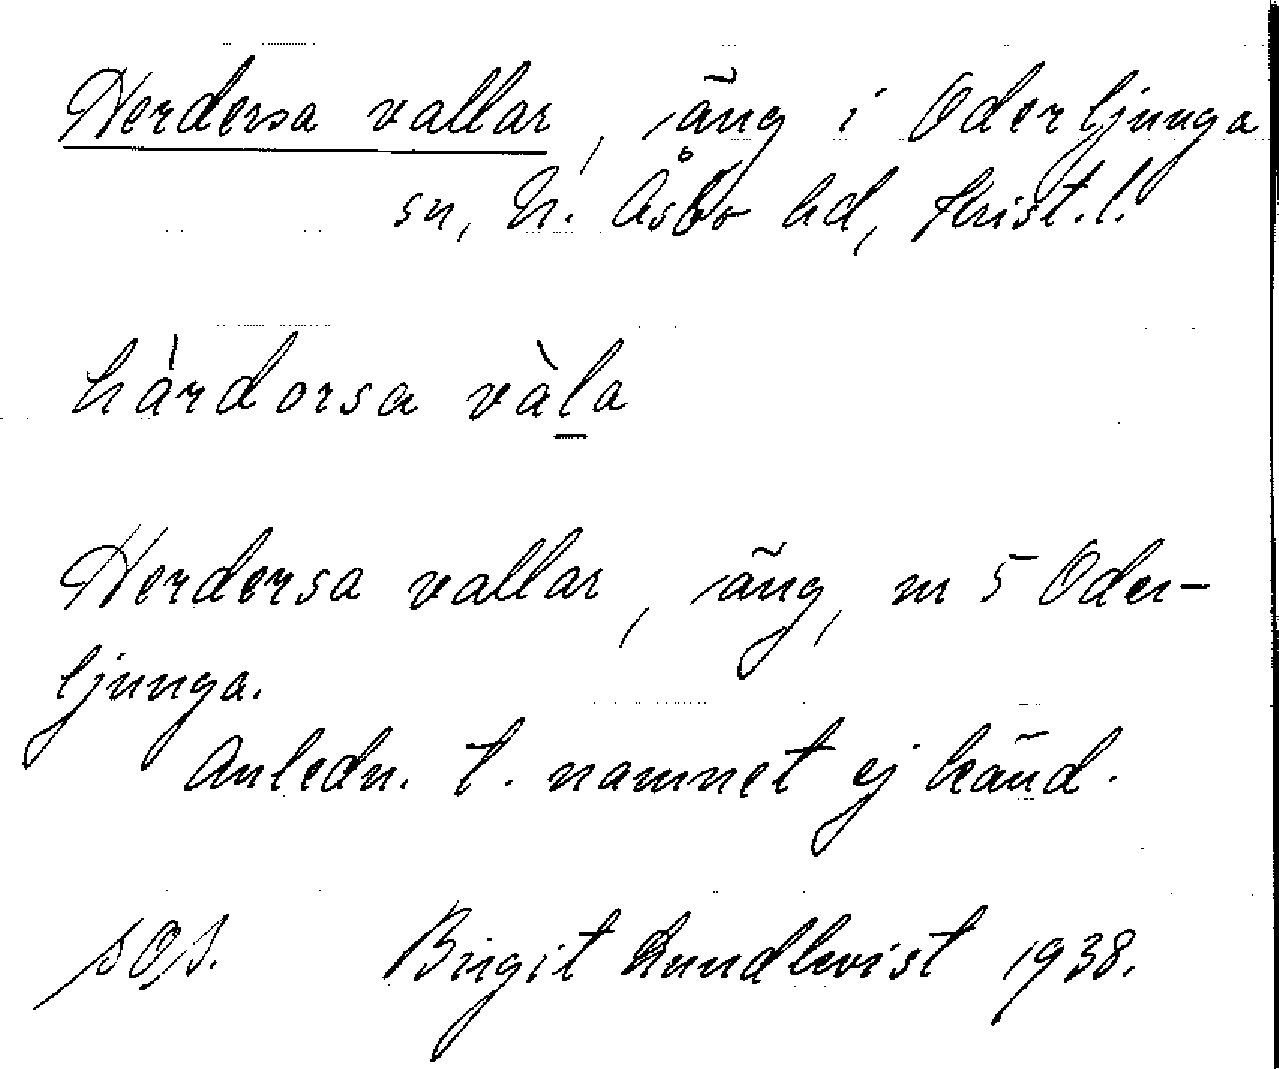 Herdersa vallar, äng i Oderljunga
sn, N. Åsbo hd, Krist. l.
hàrdorsa vàla
Herdersa vallar, äng, nr 5 Oder-
ljunga.
Anledn. t. namnet ej känd.
SOS. Birgit Lundkvist 1938.